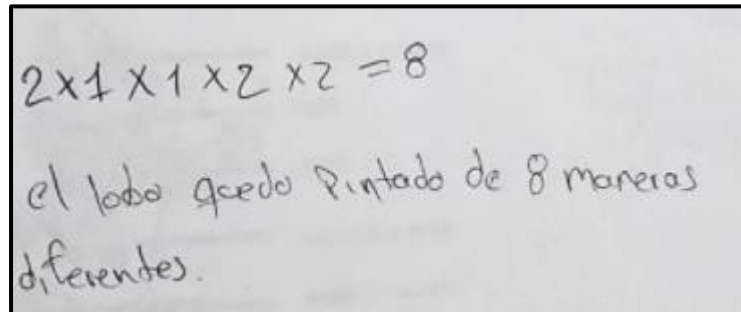 2x1x1x2x2=8
el lobo quedo Pintado de 8 maneras
diferentes.